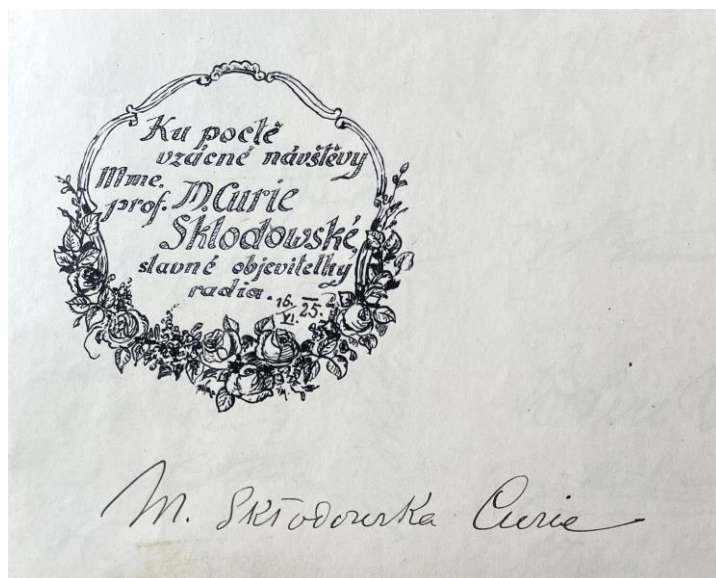 Ku poctě
vzácné návštěvy
Mme.
prof. M. Curie
Sklodowské,
slavné objevitelky
radia. 16. VI. 25.
M. Skłodowska Curie